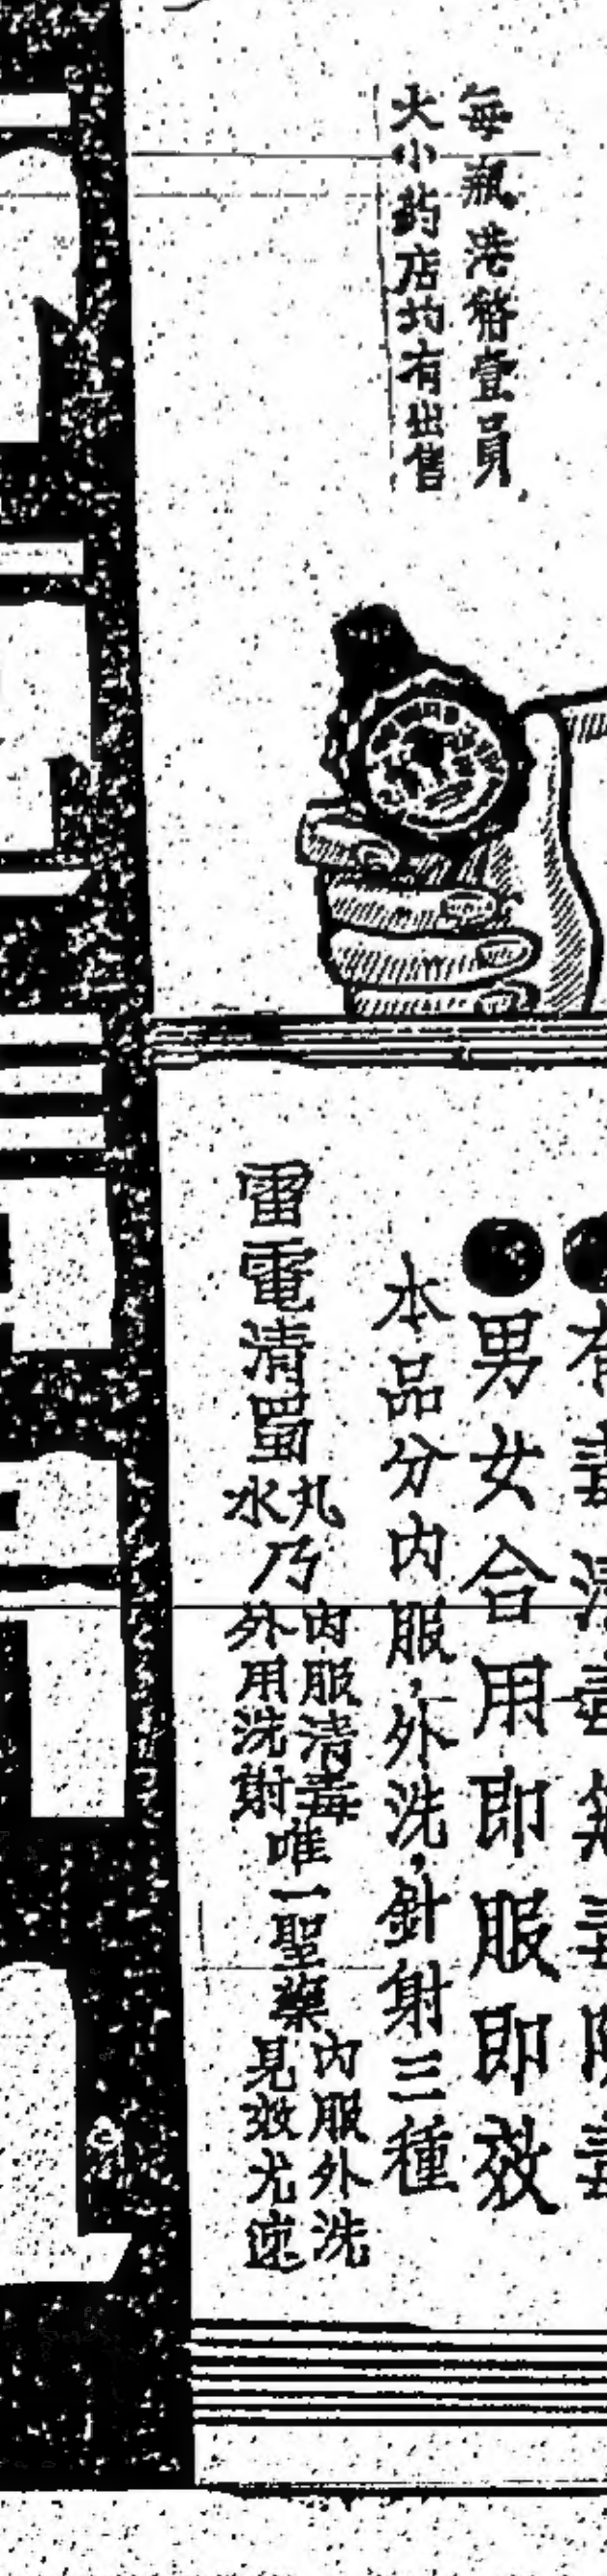 每瓶港幣壹員
大小葯店均有出售
男女合用即服即效
本品分內服,外洗,針射三種
雷電清蜀丸水乃內服清毒外用洗射唯一聖藥內服外洗見效尤速